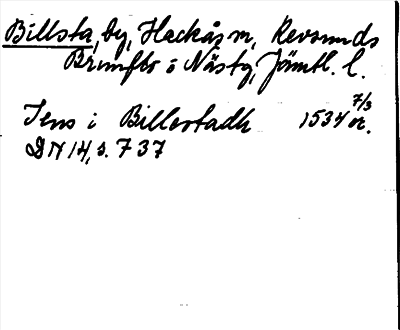 Billsta, by, Hackås sn, Revsunds
Brunflo o Näs tg, Jämtl. l.
Jens i Billestadh 1534 7/3 or.
DN 14, s. 737